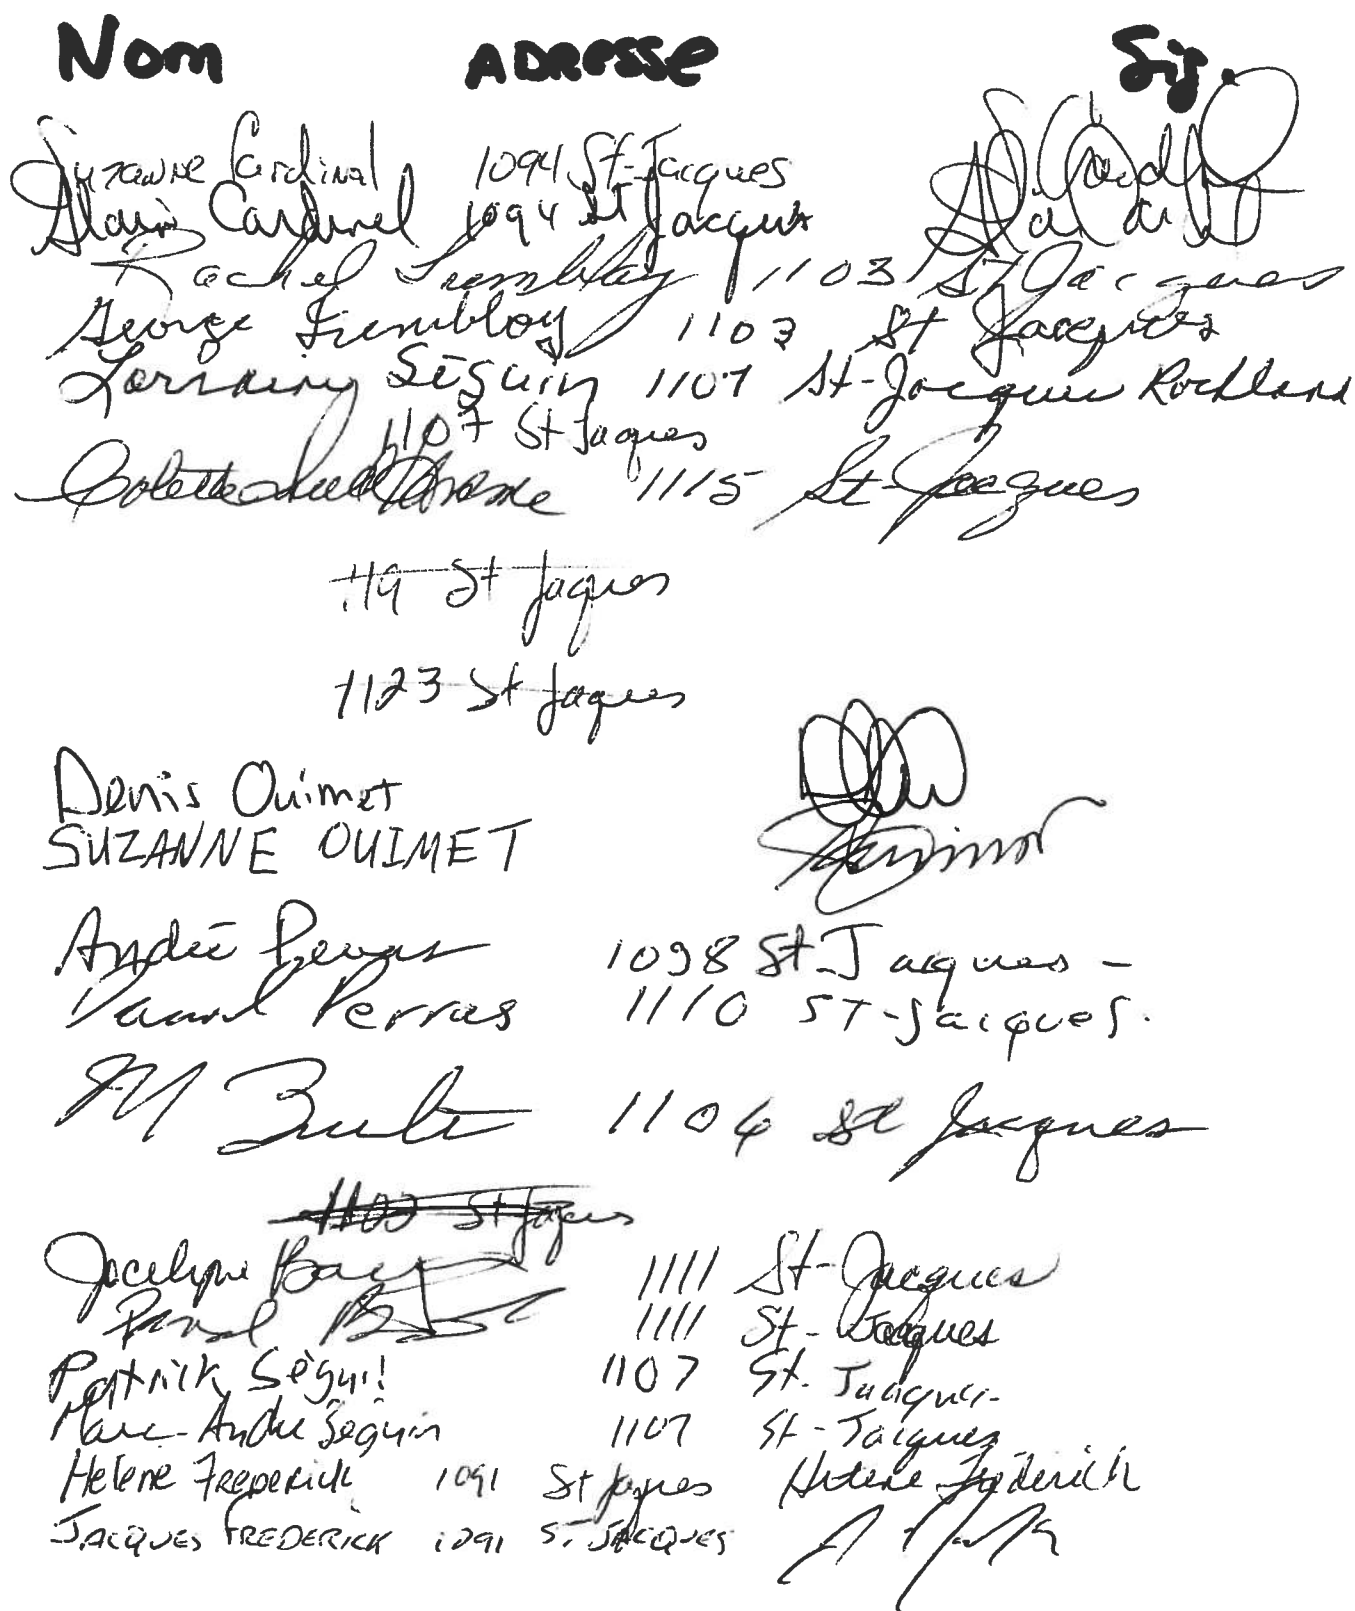 Nom ADRESSE Sig.
Suzanne Cardinal 1094 St-Jacques
Alain Cardinal 1094 St Jacques
Rachel Tremblay 1103 St Jacques
George Tremblay 1103 St Jacques
Lorraine Séguin 1107 St-Jacques Rockland
1107 St Jaques
Colette 1115 St-Jacques
1119 St Jaques
1123 St Jaques
Denis Ouimet
SUZANNE OUIMET
André Perras 1098 St-Jacques -
Daniel Perras 1110 ST-Jacques.
M 1106 St Jacques
1103 St Jaques
Jocelyne 1111 St-Jacques
1111 St-Jacques
Patrick Séguin 1107 St. Jacques
Marc-André Séguin 1107 St-Jacques
Helene FREDERICK 1091 St Jaques Helene Frederick
JACQUES FREDERICK 1091 ST JACQUES